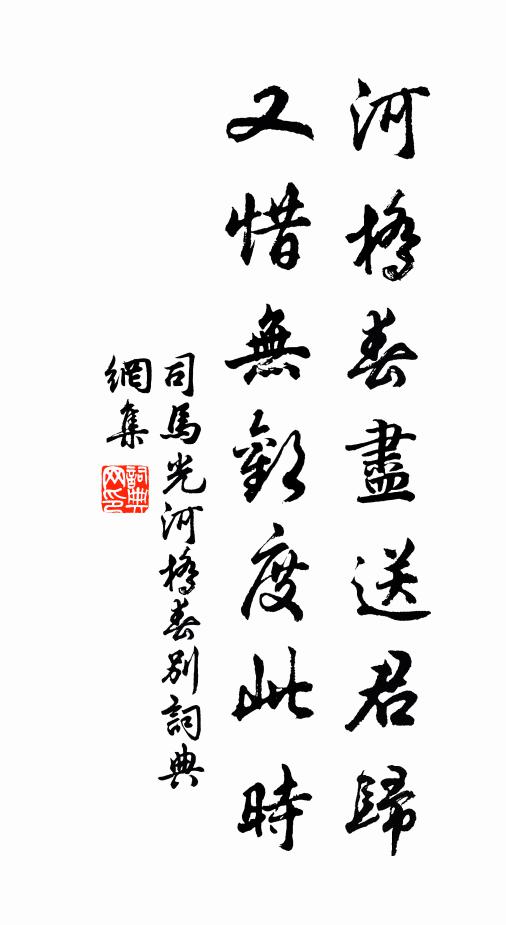 河橋春盡送君歸
又惜無歡度此時
司馬光河橋春別詞典
網集
詞典
网印